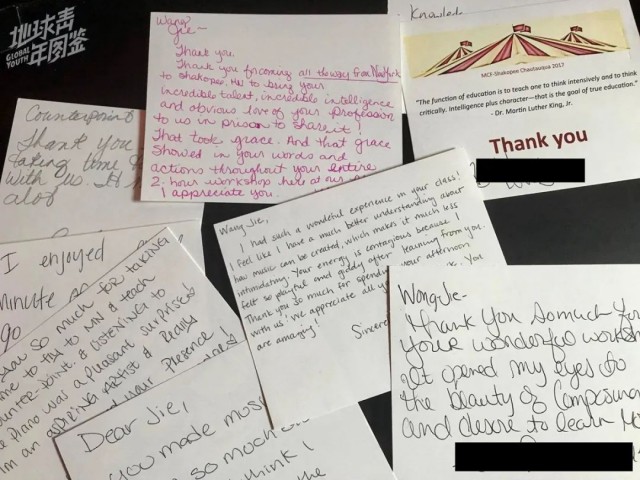 地球青
年图鉴
GLOBAL
YOUTH
Wang
Jie—
Thank you.
Thank you for coming all the way from New York
to Shakopee, MN to bring your
incredible talent, incredible intelligence
and obvious love of your profession
to us in prison to share it!
That took grace. And that grace
showed in your words and
actions throughout your entire
2-hour workshop here at our
I appreciate you.
MCF-Shakopee Chautauqua 2017
"The function of education is to teach one to think intensively and to think
critically. Intelligence plus character—that is the goal of true education."
- Dr. Martin Luther King, Jr.
Thank you
Counterpoint
Thank you
taking time
with us. It
alot
Wang Jie,
I had such a wonderful experience in your class!
I feel like I have a much better understanding about
how music can be created, which makes it much less
intimidating. Your energy is contagious because I
felt so playful and giddy after learning from you.
Thank you so much for spending your afternoon
with us! We appreciate all you You
are amazing!
Sincere
I enjoyed
minute
go
so much for taking
time to MN & teach
counterpoint. & listening to
piano was a pleasant surprise
I'm an aspiring artist & really
your presence!
Dear Jie,
you made mus
so much
think I
the
Wang Jie-
Thank you so much for
your wonderful worksh
It opened my eyes to
the beauty of composing
and desire to learn